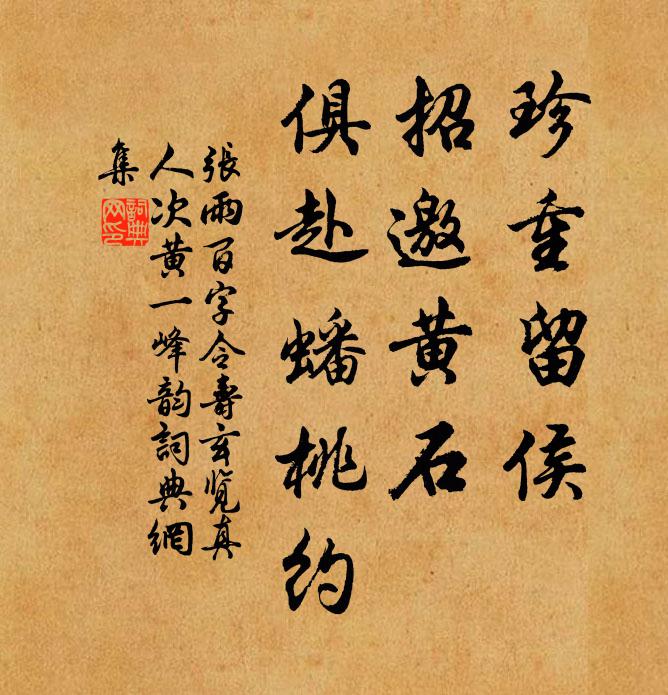 珍重留侯
招邀黄石
俱赴蟠桃约
張雨百字令壽玄覽真
人次黄一峰韵詞典網
集
詞典
网印